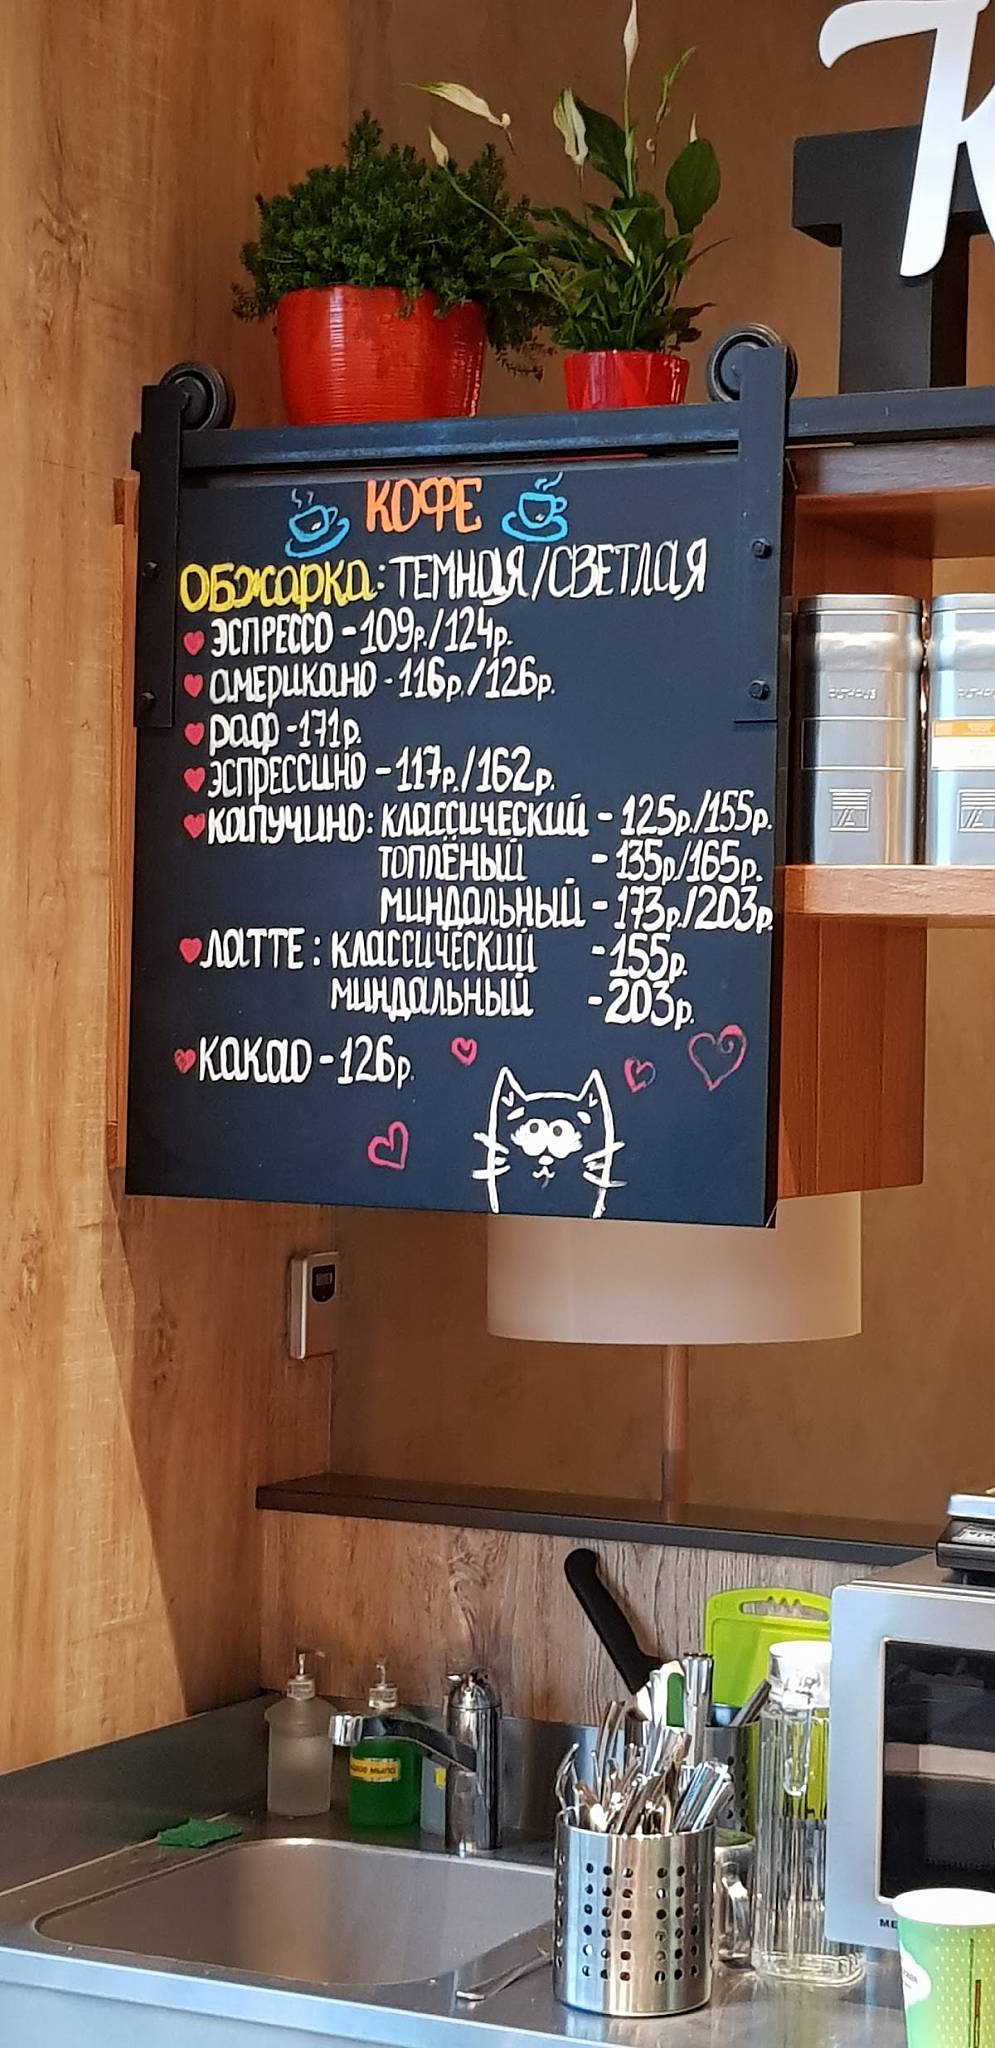 КОФЕ
ОБЖАРКА: ТЕМНАЯ/СВЕТЛАЯ
ЭСПРЕССО - 109р./124р.
американо - 116р./126р.
раф - 171р.
ЭСПРЕССИНО - 117р./162р.
капучино: классический - 125р./155р.
топлёный - 135р./165р.
миндальный - 173р./203р.
ЛАТТЕ: классический - 155р.
миндальный - 203р.
какао - 126р.
мыло